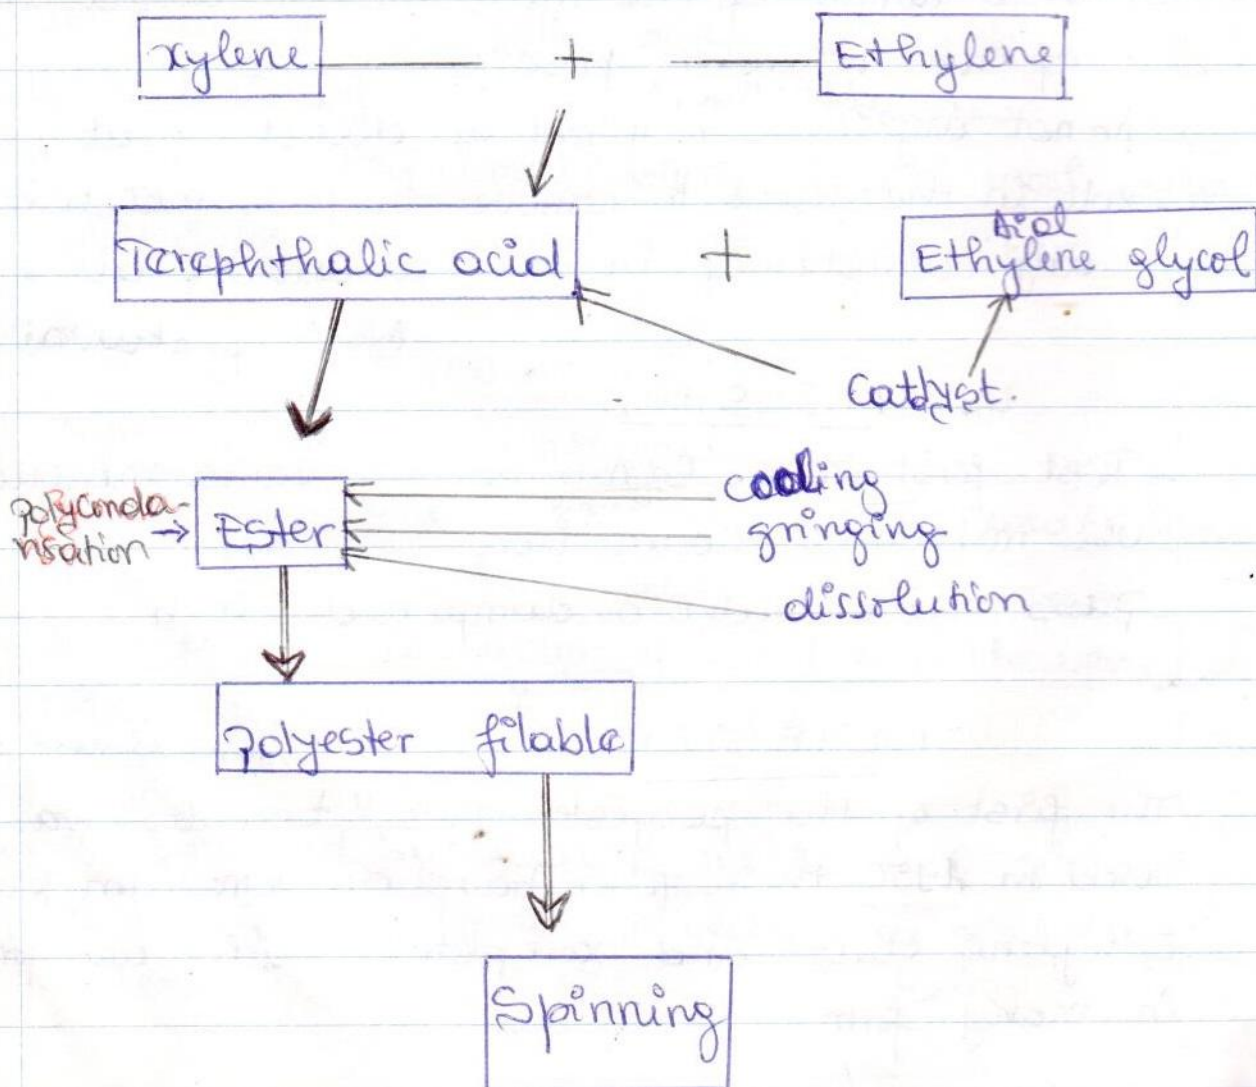 xylene + Ethylene
Terephthalic acid + Ethylene glycol
Catalyst.
cooling
Polyconda-
nsation Ester gringing
dissolution
Polyester filable
Spinning